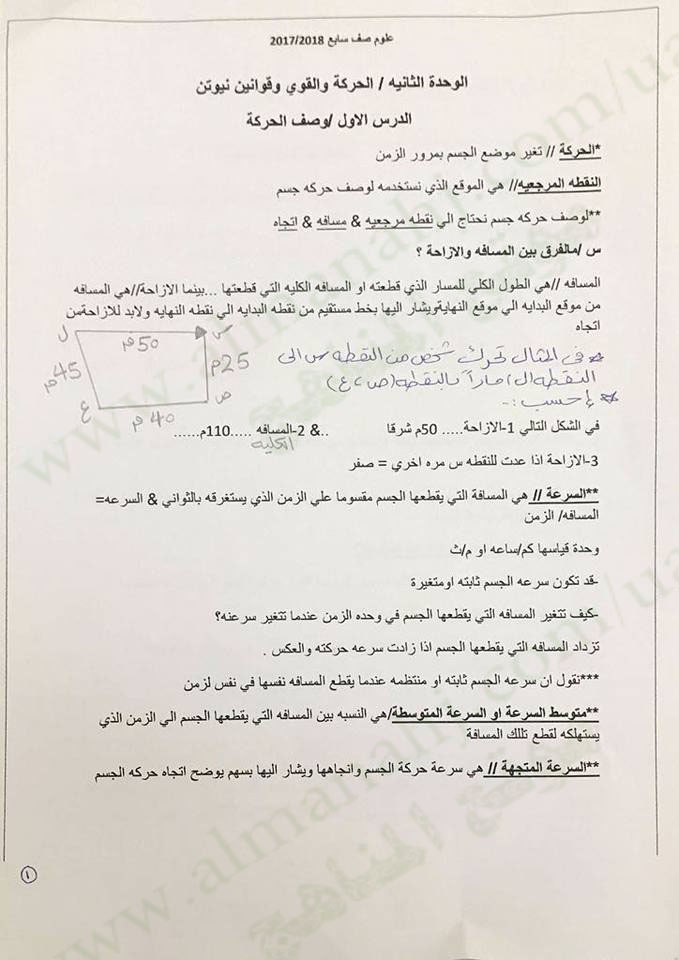 علوم صف سابع 2017/2018
الوحدة الثانيه / الحركة والقوي وقوانين نيوتن
الدرس الاول /وصف الحركة
*الحركة // تغير موضع الجسم بمرور الزمن
النقطه المرجعيه// هي الموقع الذي نستخدمه لوصف حركه جسم
**لوصف حركه جسم نحتاج الي نقطه مرجعيه & مسافه & اتجاه
س /مالفرق بين المسافه والازاحة ؟
المسافه //هي الطول الكلي للمسار الذي قطعته او المسافه الكليه التي قطعتها ...بينما الازاحة//هي المسافه
من موقع البدايه الي موقع النهايةويشار اليها بخط مستقيم من نقطه البدايه الي نقطه النهايه ولابد للازاحةمن
اتجاه
س
ل
50 م
25 م
45 م
ص
ع
40 م
* في المثال تحرك شخص من النقطه س الى
النقطه (ل) ماراً بالنقطه (ص، ع)
* إحسب :-
في الشكل التالي 1-الازاحة..... 50م شرقا ..& 2-المسافه .....110م......
الكليه
3-الازاحة اذا عدت للنقطه س مره اخري = صفر
**السرعة // هي المسافة التي يقطعها الجسم مقسوما علي الزمن الذي يستغرقه بالثواني & السرعه=
المسافه/ الزمن
وحدة قياسها كم/ساعه او م/ث
-قد تكون سرعه الجسم ثابته اومتغيرة
-كيف تتغير المسافه التي يقطعها الجسم في وحده الزمن عندما تتغير سرعته؟
تزداد المسافه التي يقطعها الجسم اذا زادت سرعه حركته والعكس .
***نقول ان سرعه الجسم ثابته او منتظمه عندما يقطع المسافه نفسها في نفس لزمن
**متوسط السرعة او السرعة المتوسطة/هي النسبه بين المسافه التي يقطعها الجسم الي الزمن الذي
يستهلكه لقطع تللك المسافة
**السرعة المتجهة // هي سرعة حركة الجسم واتجاهها ويشار اليها بسهم يوضح اتجاه حركه الجسم
١
www.almanahj.com/uae
موقع المناهج